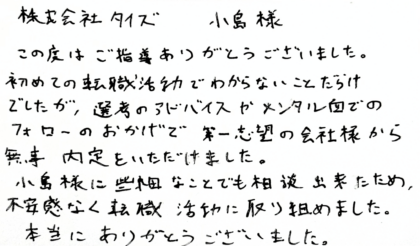 株式会社タイズ　小島様
この度はご指導ありがとうございました。
初めての転職活動でわからないことだらけ
でしたが、選考のアドバイスやメンタル面での
フォローのおかげで 第一志望の会社様から
無事 内定をいただけました。
小島様に些細なことでも相談出来たため、
不安感なく転職活動に取り組めました。
本当にありがとうございました。